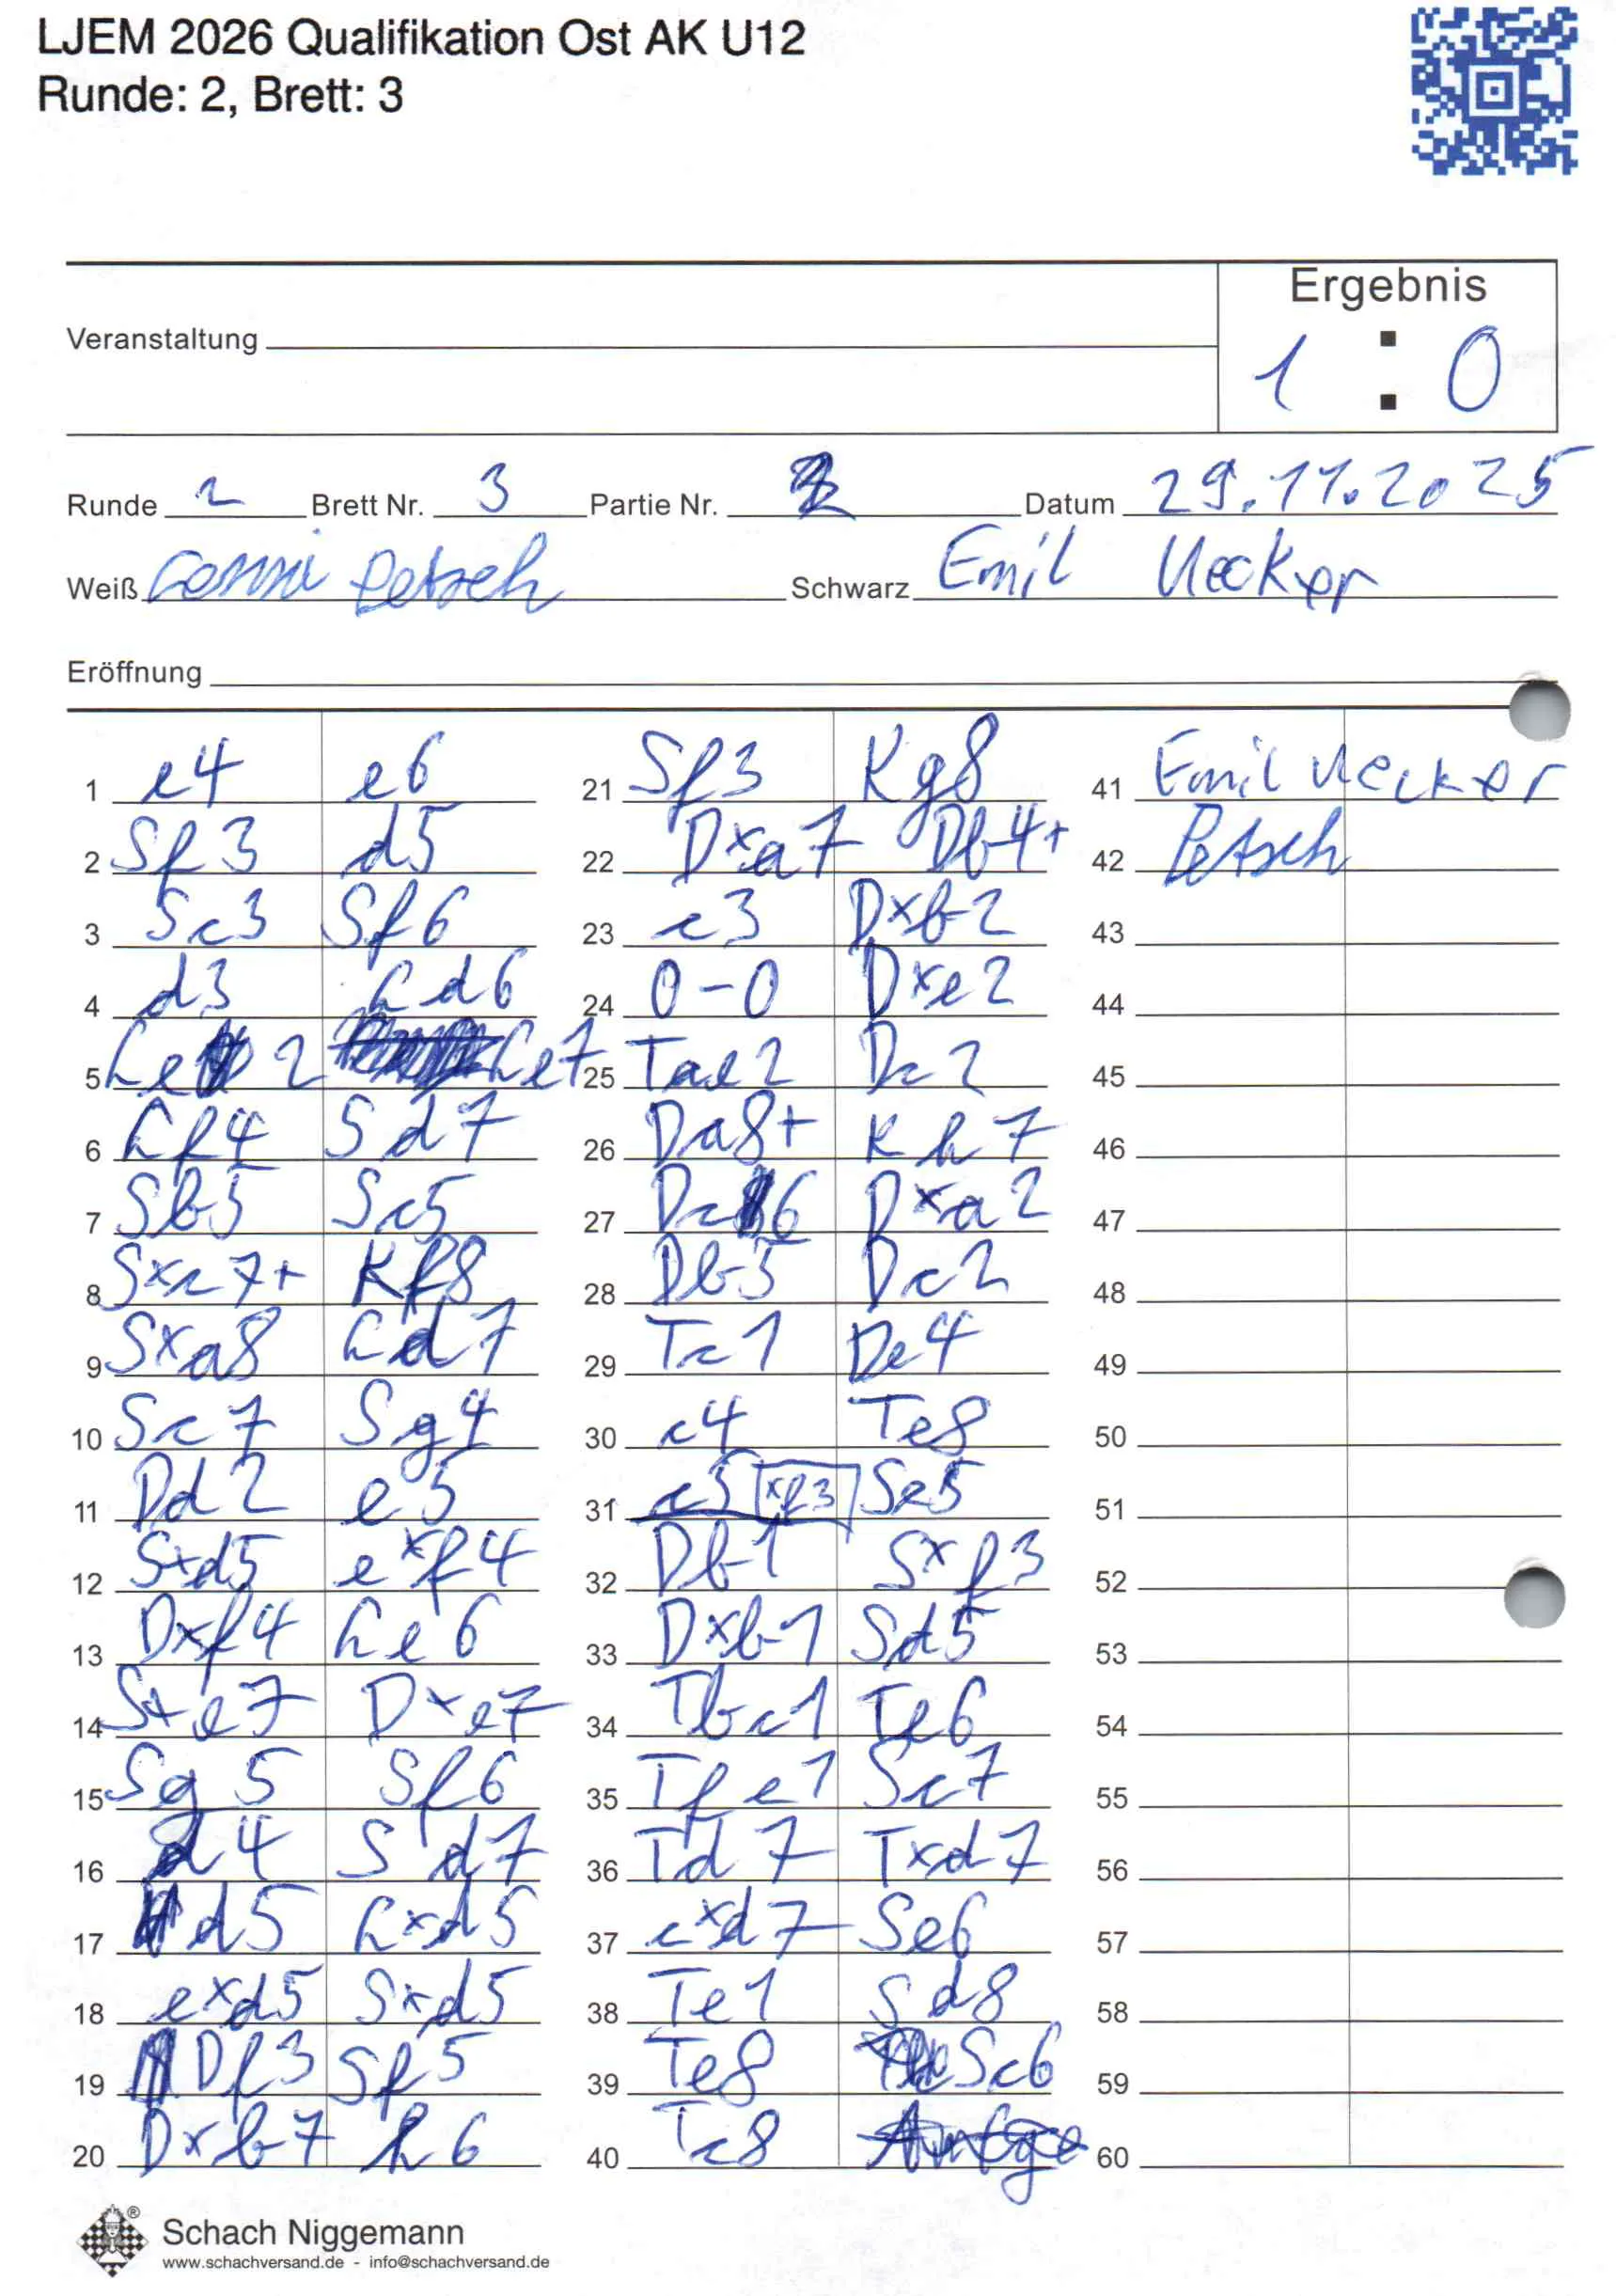 LJEM 2026 Qualifikation Ost AK U12
Runde: 2, Brett: 3
Ergebnis
Veranstaltung
1 : 0
Runde 2 Brett Nr. 3 Partie Nr. Datum 29.11.2025
Weiß Petsch Schwarz Emil Uecker
Eröffnung
1 e4 e6
2 Sf3 d5
3 Sc3 Sf6
4 d3 Ld6
5 Le2 Le7
6 Lf4 Sd7
7 Sb5 Sc5
8 Sxc7+ Kf8
9 Sxa8 Ld7
10 Sc7 Sg4
11 Dd2 e5
12 Sxd5 exf4
13 Dxf4 Le6
14 Sxe7 Dxe7
15 Sg5 Sf6
16 d4 Sd7
17 d5 Lxd5
18 exd5 Sxd5
19 Df3 Sf5
20 Dxb7 h6
21 Sf3 Kg8
22 Dxa7 Db4+
23 c3 Dxb2
24 0-0 Dxe2
25 Tae2 Dc2
26 Da8+ Kh7
27 Dc6 Dxa2
28 Db5 Dc2
29 Tc1 De4
30 c4 Te8
31 c5 xf3 Se5
32 Db1 Sxf3
33 Dxb1 Sd5
34 Tbc1 Te6
35 Tfe1 Sc7
36 Td7 Txd7
37 cxd7 Se6
38 Te1 Sd8
39 Te8 Sc6
40 Tc8
41 Emil Uecker
42 Petsch
43
44
45
46
47
48
49
50
51
52
53
54
55
56
57
58
59
60
Schach Niggemann
www.schachversand.de - info@schachversand.de